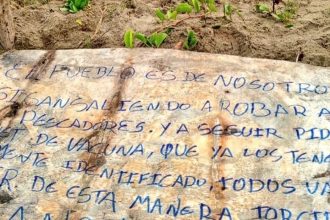 EL PUEBLO ES DE NOSOTRO
ESTAN SALIENDO A ROBAR A
PESCADORES. YA SEGUIR PID
T DE VACUNA, QUE YA LOS TENE
MENTE IDENTIFICADO, TODOS VA
R DE ESTA MANERA JORG